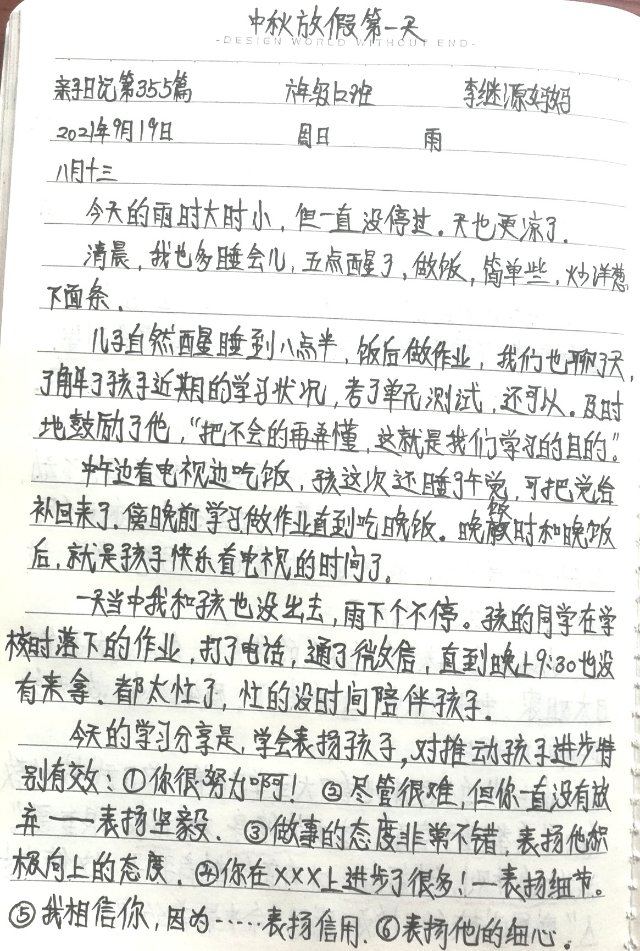 中秋放假第一天
-DESIGN WORLD WITHOUT END-
亲子日记第355篇 六年级12班 李继源妈妈
2021年9月19日 周日 雨
八月十三
今天的雨时大时小，但一直没停过。天也更凉了。
清晨，我也多睡会儿，五点醒了，做饭，简单些，炒洋葱
下面条。
儿子自然醒睡到八点半，饭后做作业，我们也聊了天，
了解了孩子近期的学习状况，考了单元测试，还可以。及时
地鼓励了他，“把不会的再弄懂，这就是我们学习的目的”。
中午边看电视边吃饭，孩这次还睡了午觉，可把觉给
补回来了。傍晚前学习做作业直到吃晚饭。晚饭时和晚饭
后，就是孩子快乐看电视的时间了。
一天当中我和孩也没出去，雨下个不停。孩的同学在学
校时落下的作业，打了电话，通了微信，直到晚上9:30也没
有来拿。都太忙了，忙的没时间陪伴孩子。
今天的学习分享是，学会表扬孩子，对推动孩子进步特
别有效：①你很努力啊！ ②尽管很难，但你一直没有放
弃——表扬坚毅。 ③做事的态度非常不错，表扬他积
极向上的态度。④你在XXX上进步了很多！—表扬细节。
⑤我相信你，因为……表扬信用。⑥表扬他的细心。